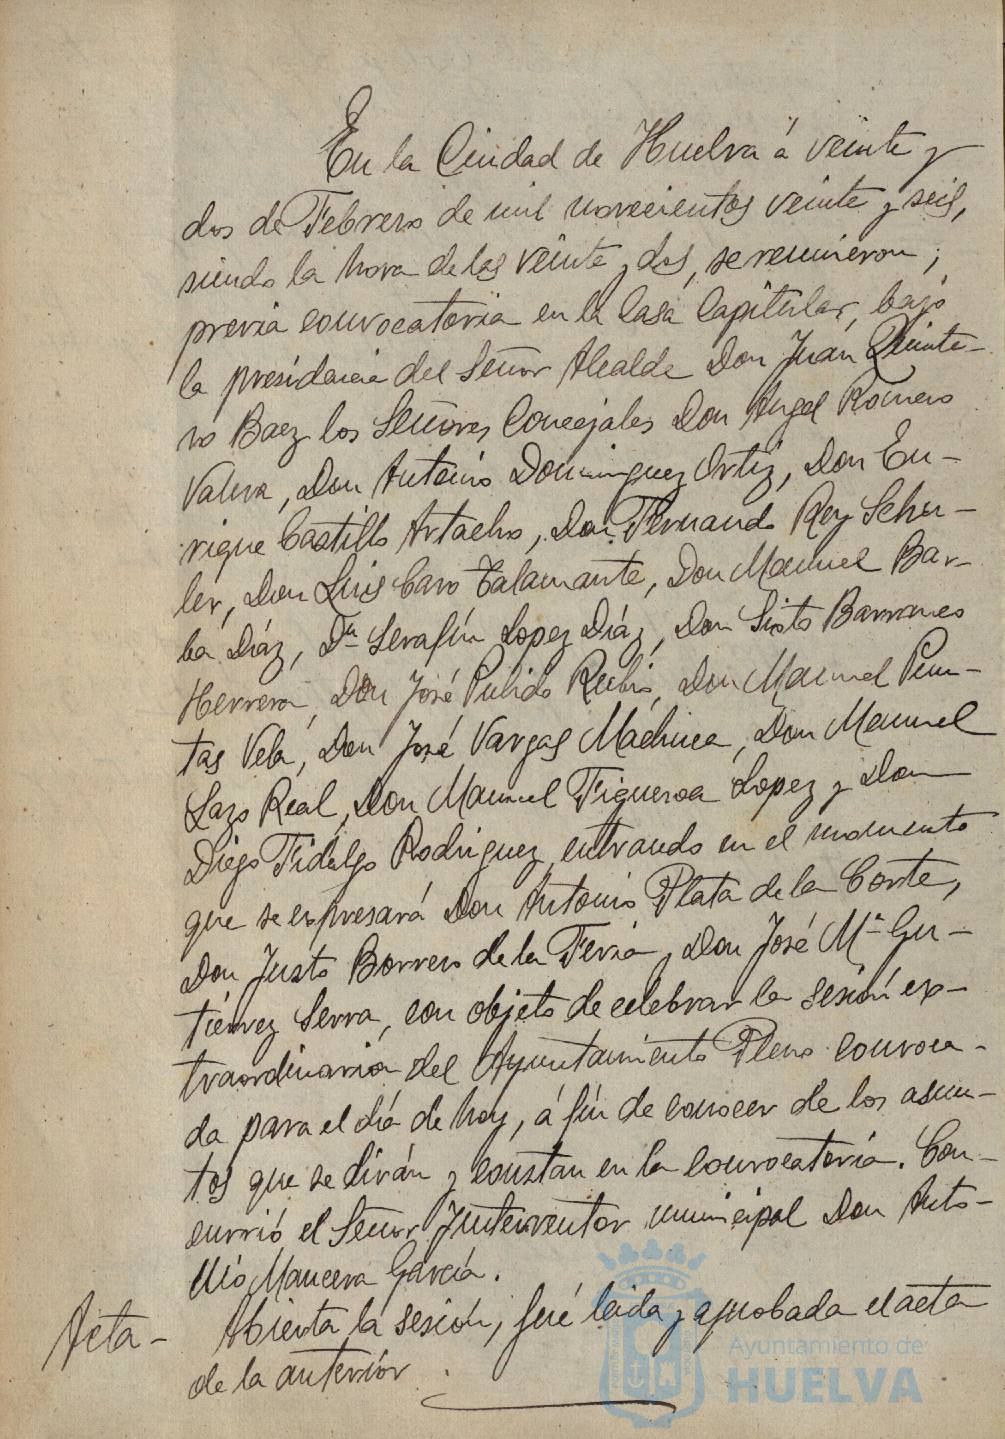 En la Ciudad de Huelva á veinte y
dos de Febrero de mil novecientos veinte y seis,
siendo la hora de las veinte y dos, se reunieron,
previa convocatoria en la Casa Capitular, bajo
la presidencia del Señor Alcalde Don Juan Quinte-
ro Baez los Señores Concejales Don Angel Romero
Valera, Don Antonio Dominguez Ortiz, Don En-
rique Castillo Artacho, Don Fernando Rey Schu-
ler, Don Luis Caro Talamante, Don Manuel Bar-
ba Díaz, Dn Serafín Lopez Díaz, Don Sisto Barranco
Herrera, Don José Pulido Rubio, Don Manuel Pun-
tas Vela, Don José Vargas Machuca, Don Manuel
Lazo Real, Don Manuel Figueroa Lopez y Don
Diego Fidalgo Rodriguez, entrando en el momento
que se expresará Don Antonio Plata de la Corte,
Don Justo Borrero de la Feria y Don José Mª Gu-
tiérrez Serra, con objeto de celebrar la sesión ex-
traordinaria del Ayuntamiento Pleno convoca-
da para el día de hoy, á fín de conocer de los asun-
tos que se dirán y constan en la convocatoria. Con-
currió el Señor Interventor municipal Don Anto-
nio Mancera García.
Acta- Abierta la sesión, fué leida y aprobada el acta
de la anterior.
Ayuntamiento de
HUELVA